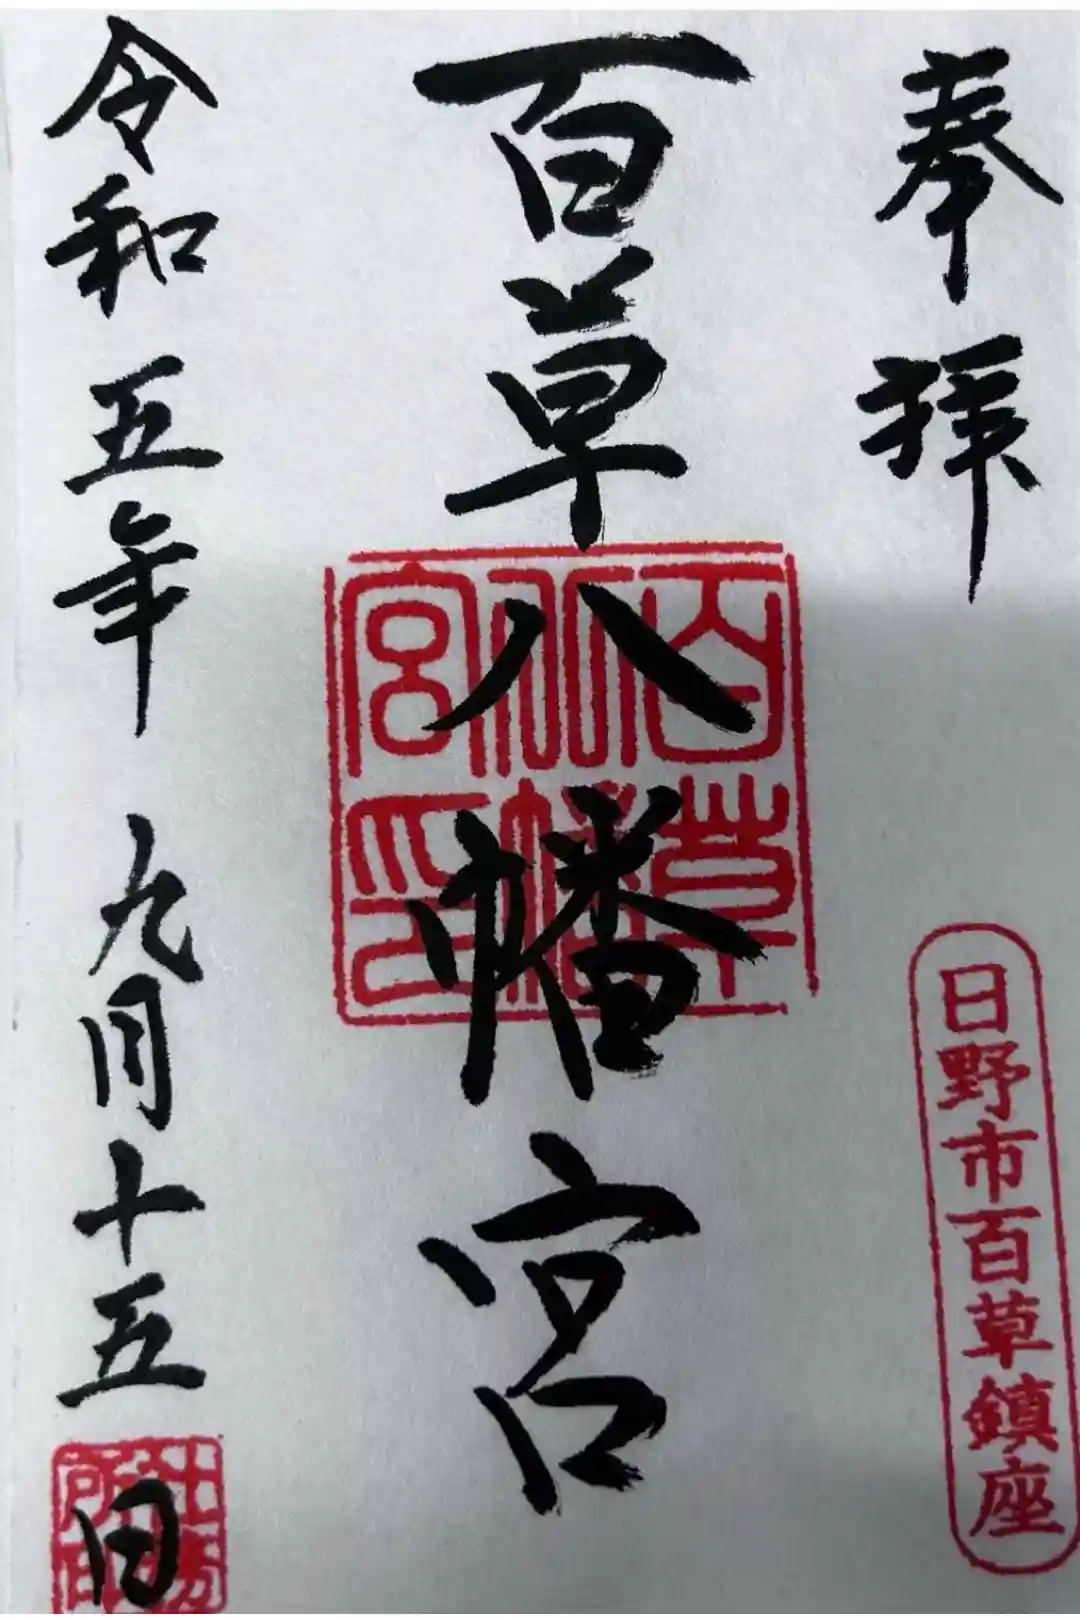 奉拝
日野市百草鎮座
百草八幡宮
百草八幡宮印
令和五年九月十五日